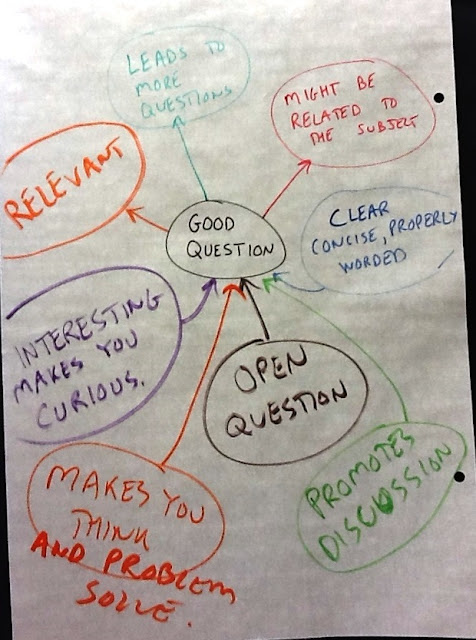 LEADS TO
MORE
QUESTIONS
MIGHT BE
RELATED TO
THE SUBJECT
RELEVANT
GOOD
QUESTION
CLEAR
CONCISE, PROPERLY
WORDED
INTERESTING
MAKES YOU
CURIOUS.
OPEN
QUESTION
PROMOTES
DISCUSSION
MAKES YOU
THINK
AND PROBLEM
SOLVE.